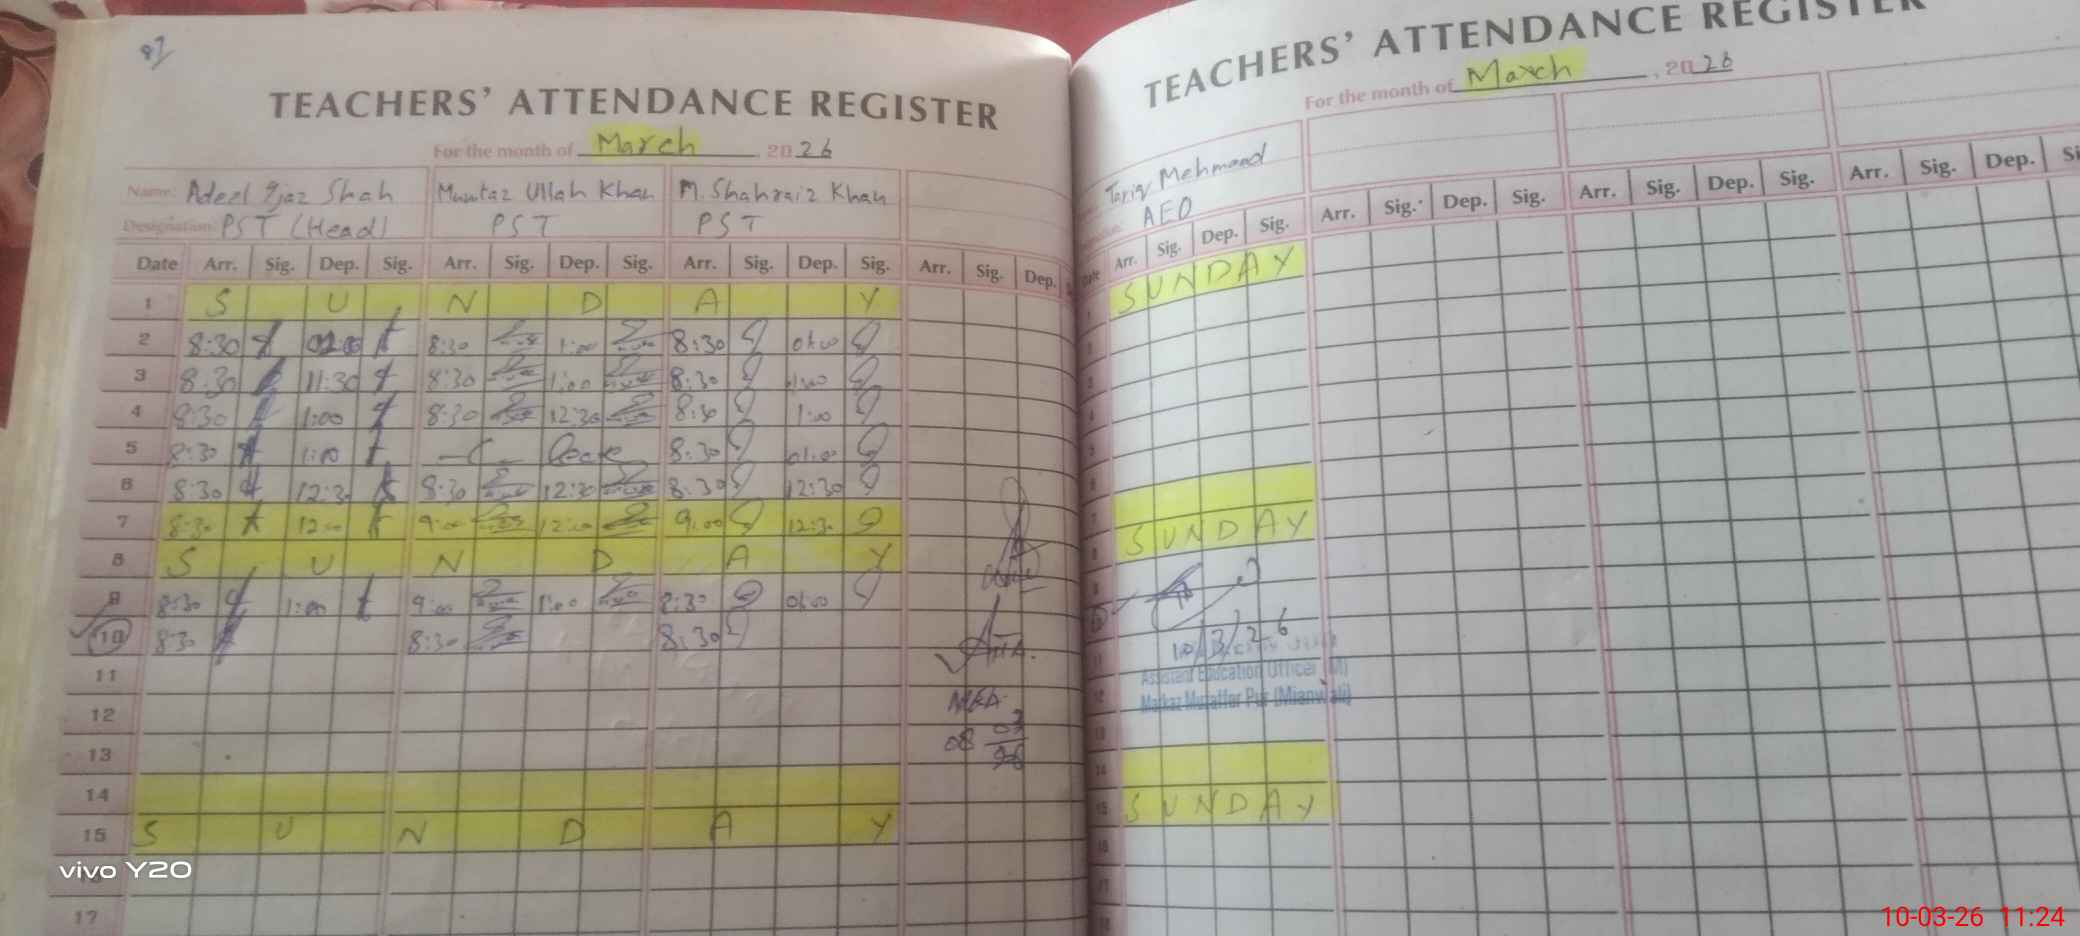 TEACHERS' ATTENDANCE REGISTER
For the month of March, 2026
Name: Adeel Ijaz Shah Mumtaz Ullah Khan M. Shahraiz Khan
Designation: PST (Head) PST PST
Date Arr. Sig. Dep. Sig. Arr. Sig. Dep. Sig. Arr. Sig. Dep. Sig. Arr. Sig. Dep.
1 S U N D A Y
2 8:30 8:30 1:00 8:30 01:00
3 8:30 11:30 8:30 1:00 8:30 1:00
4 8:30 1:00 8:30 12:30 8:30 1:00
5 8:30 1:00 8:30 01:00
6 8:30 12:30 8:30 12:30 8:30 12:30
7 8:30 12:00 9:00 12:00 9:00 12:30
8 S U N D A Y
9 8:30 1:00 9:00 1:00 8:30 01:00
10 8:30 8:30 8:30
11
12 MEA
13 08 03
14
15 S U N D A Y
17
TEACHERS' ATTENDANCE REGISTER
For the month of March, 2026
Tariq Mehmood
AEO
Date Arr. Sig. Dep. Sig. Arr. Sig. Dep. Sig. Arr. Sig. Dep. Sig. Arr. Sig. Dep.
SUNDAY
SUNDAY
10/3/26
Assistant Education Officer (M)
Markaz Muzaffer Pur (Mianwali)
SUNDAY
vivo Y20
10-03-26 11:24